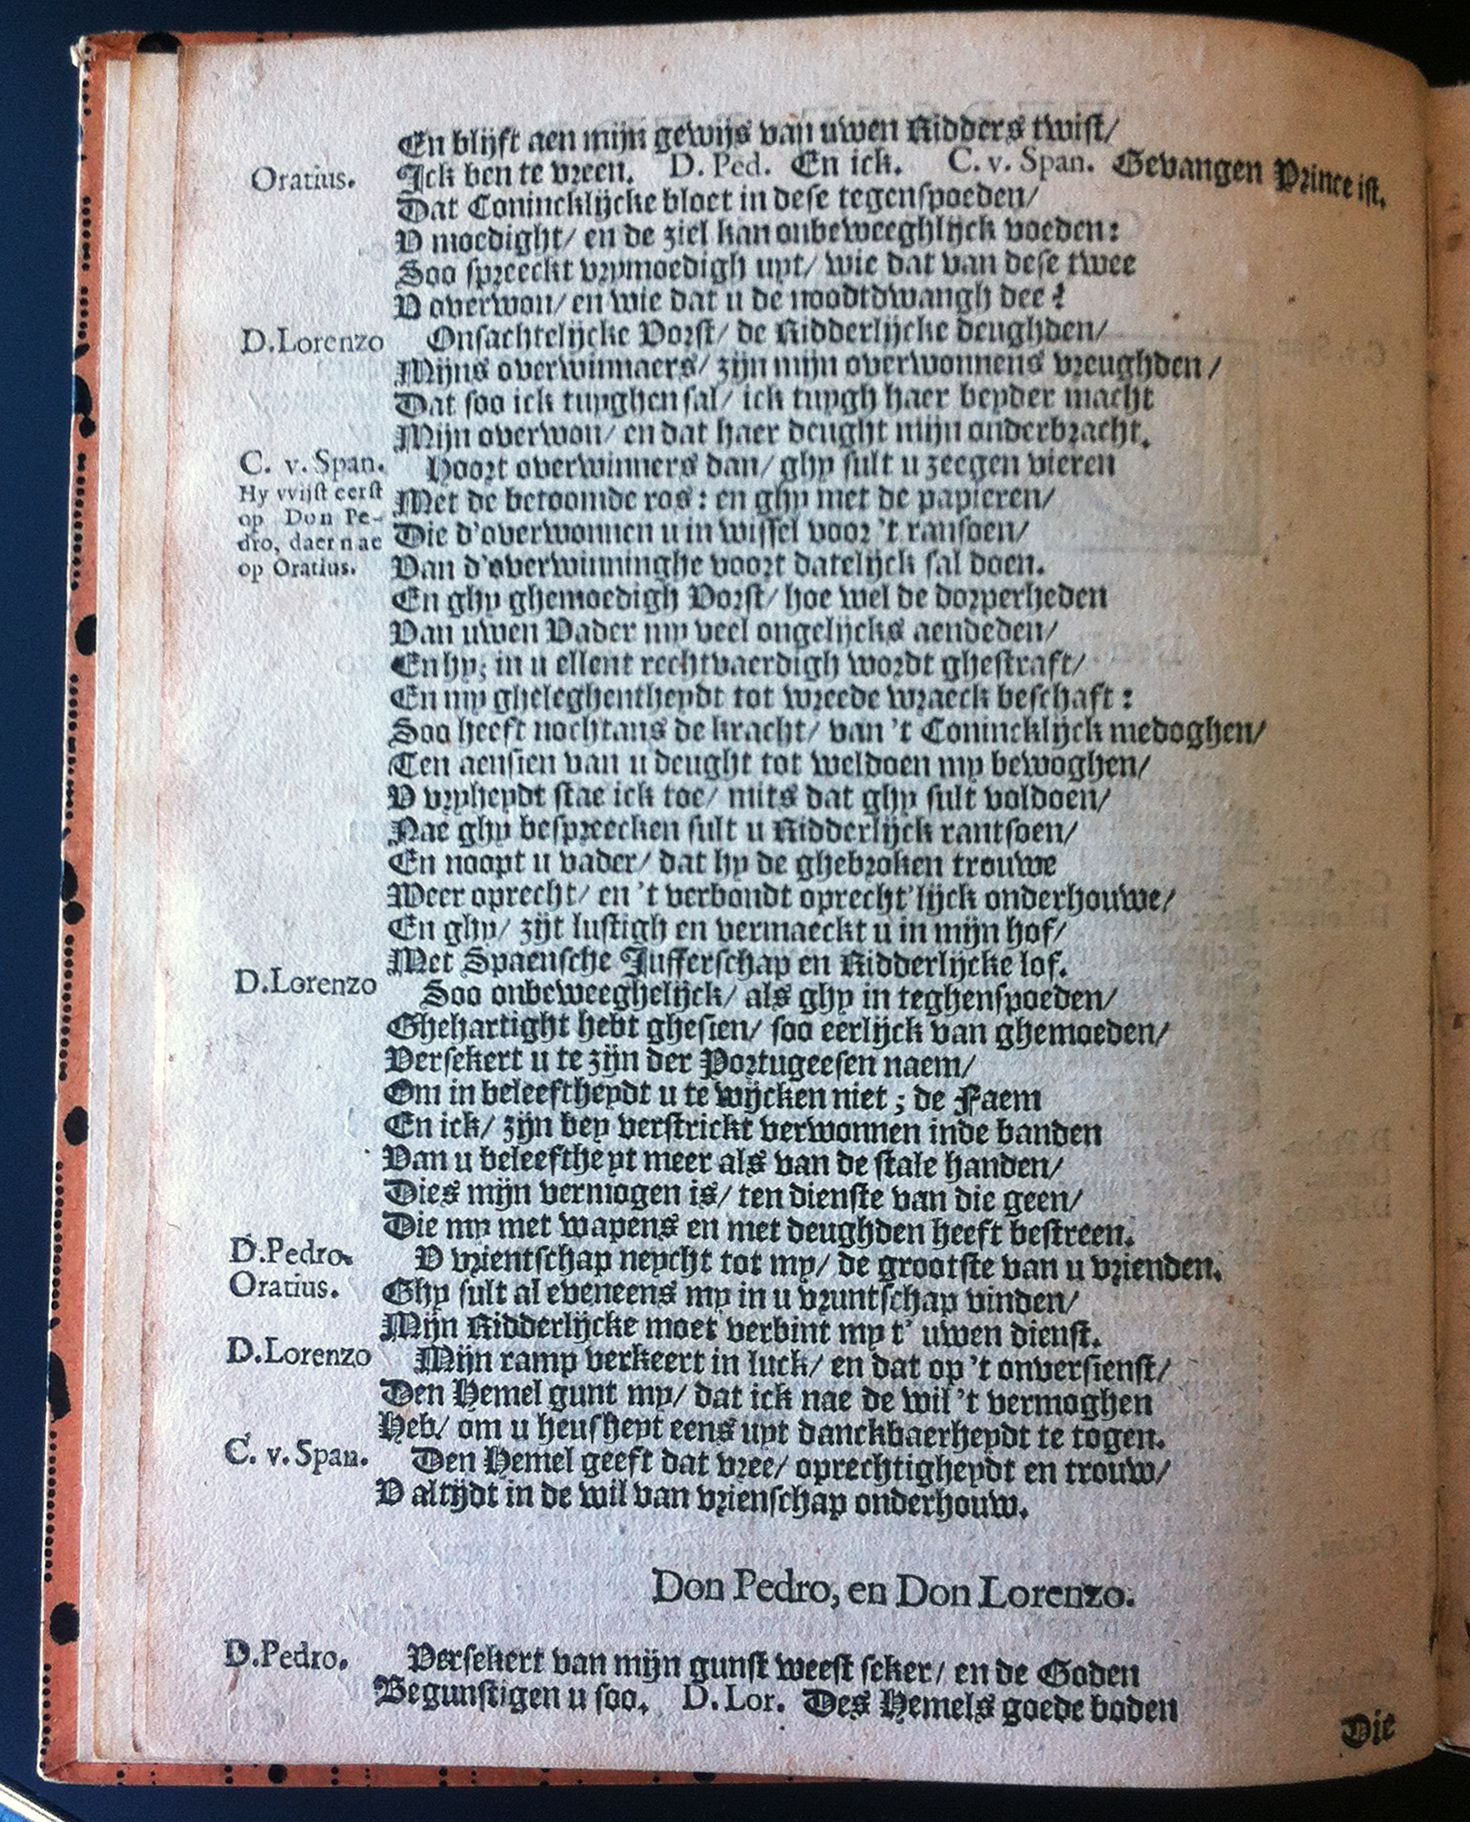 En blijft aen mijn gewijs van uwen Ridders twist/
Oratius. Ick ben te vreen. D. Ped. En ick. C. v. Span. Gevangen Prince ist,
Dat Conincklijcke bloet in dese tegenspoeden/
V moedight/ en de ziel kan onbeweeghlijck voeden:
Soo spreeckt vrymoedigh uyt/ wie dat van dese twee
V overwon/ en wie dat u de noodtdwangh dee?
D.Lorenzo Onsachtelijcke Vorst/ de Ridderlijcke deughden/
Mijns overwinnaers/ zijn mijn overwonnens vreughden/
Dat soo ick tuyghen sal/ ick tuygh haer beyder macht
Mijn overwon/ en dat haer deught mijn onderbracht.
C. v. Span. Hoort overwinners dan/ ghy sult u zeegen vieren
Hy vvijst eerst Met de betoomde ros: en ghy met de papieren/
op Don Pe- Die d'overwonnen u in wissel voor 't ransoen/
dro, daer nae Van d'overwinninghe voort datelijck sal doen.
op Oratius.
En ghy ghemoedigh Vorst/ hoe wel de dorperheden
Van uwen Vader my veel ongelijcks aendeden/
En hy; in u ellent rechtvaerdigh wordt ghestraft/
En my gheleghentheydt tot wreede wraeck beschaft:
Soo heeft nochtans de kracht/ van 't Conincklijck medoghen/
Ten aensien van u deught tot weldoen my bewoghen/
V vryheydt stae ick toe/ mits dat ghy sult voldoen/
Nae ghy bespreecken sult u Ridderlijck rantsoen/
En noopt u vader/ dat hy de ghebroken trouwe
Weer oprecht/ en 't verbondt oprecht'lijck onderhouwe/
En ghy/ zijt lustigh en vermaeckt u in mijn hof/
Met Spaensche Jufferschap en Ridderlijcke lof.
D.Lorenzo Soo onbeweeghelijck/ als ghy in teghenspoeden/
Ghehartight hebt ghesien/ soo eerlijck van ghemoeden/
Versekert u te zijn der Portugeesen naem/
Om in beleeftheydt u te wijcken niet; de Faem
En ick/ zijn bey verstrickt verwonnen inde banden
Van u beleeftheyt meer als van de stale handen/
Dies mijn vermogen is/ ten dienste van die geen/
Die my met wapens en met deughden heeft bestreen.
D.Pedro. V vrientschap neycht tot my/ de grootste van u vrienden.
Oratius. Ghy sult al eveneens my in u vruntschap vinden/
Mijn Ridderlijcke moet verbint my t' uwen dienst.
D.Lorenzo Mijn ramp verkeert in luck/ en dat op 't onversienst/
Den Hemel gunt my/ dat ick nae de wil 't vermoghen
Heb/ om u heusheyt eens uyt danckbaerheydt te togen.
C. v. Span. Den Hemel geeft dat vree/ oprechtigheydt en trouw/
V altijdt in de wil van vrienschap onderhouw.
Don Pedro, en Don Lorenzo.
D.Pedro. Versekert van mijn gunst weest seker/ en de Goden
Begunstigen u soo. D. Lor. Des Hemels goede boden
Die